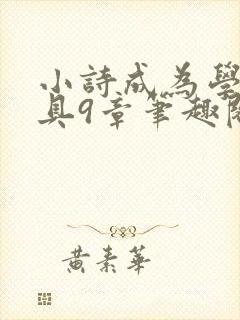 小詩成為學
具9章筆趣閣
黃素華